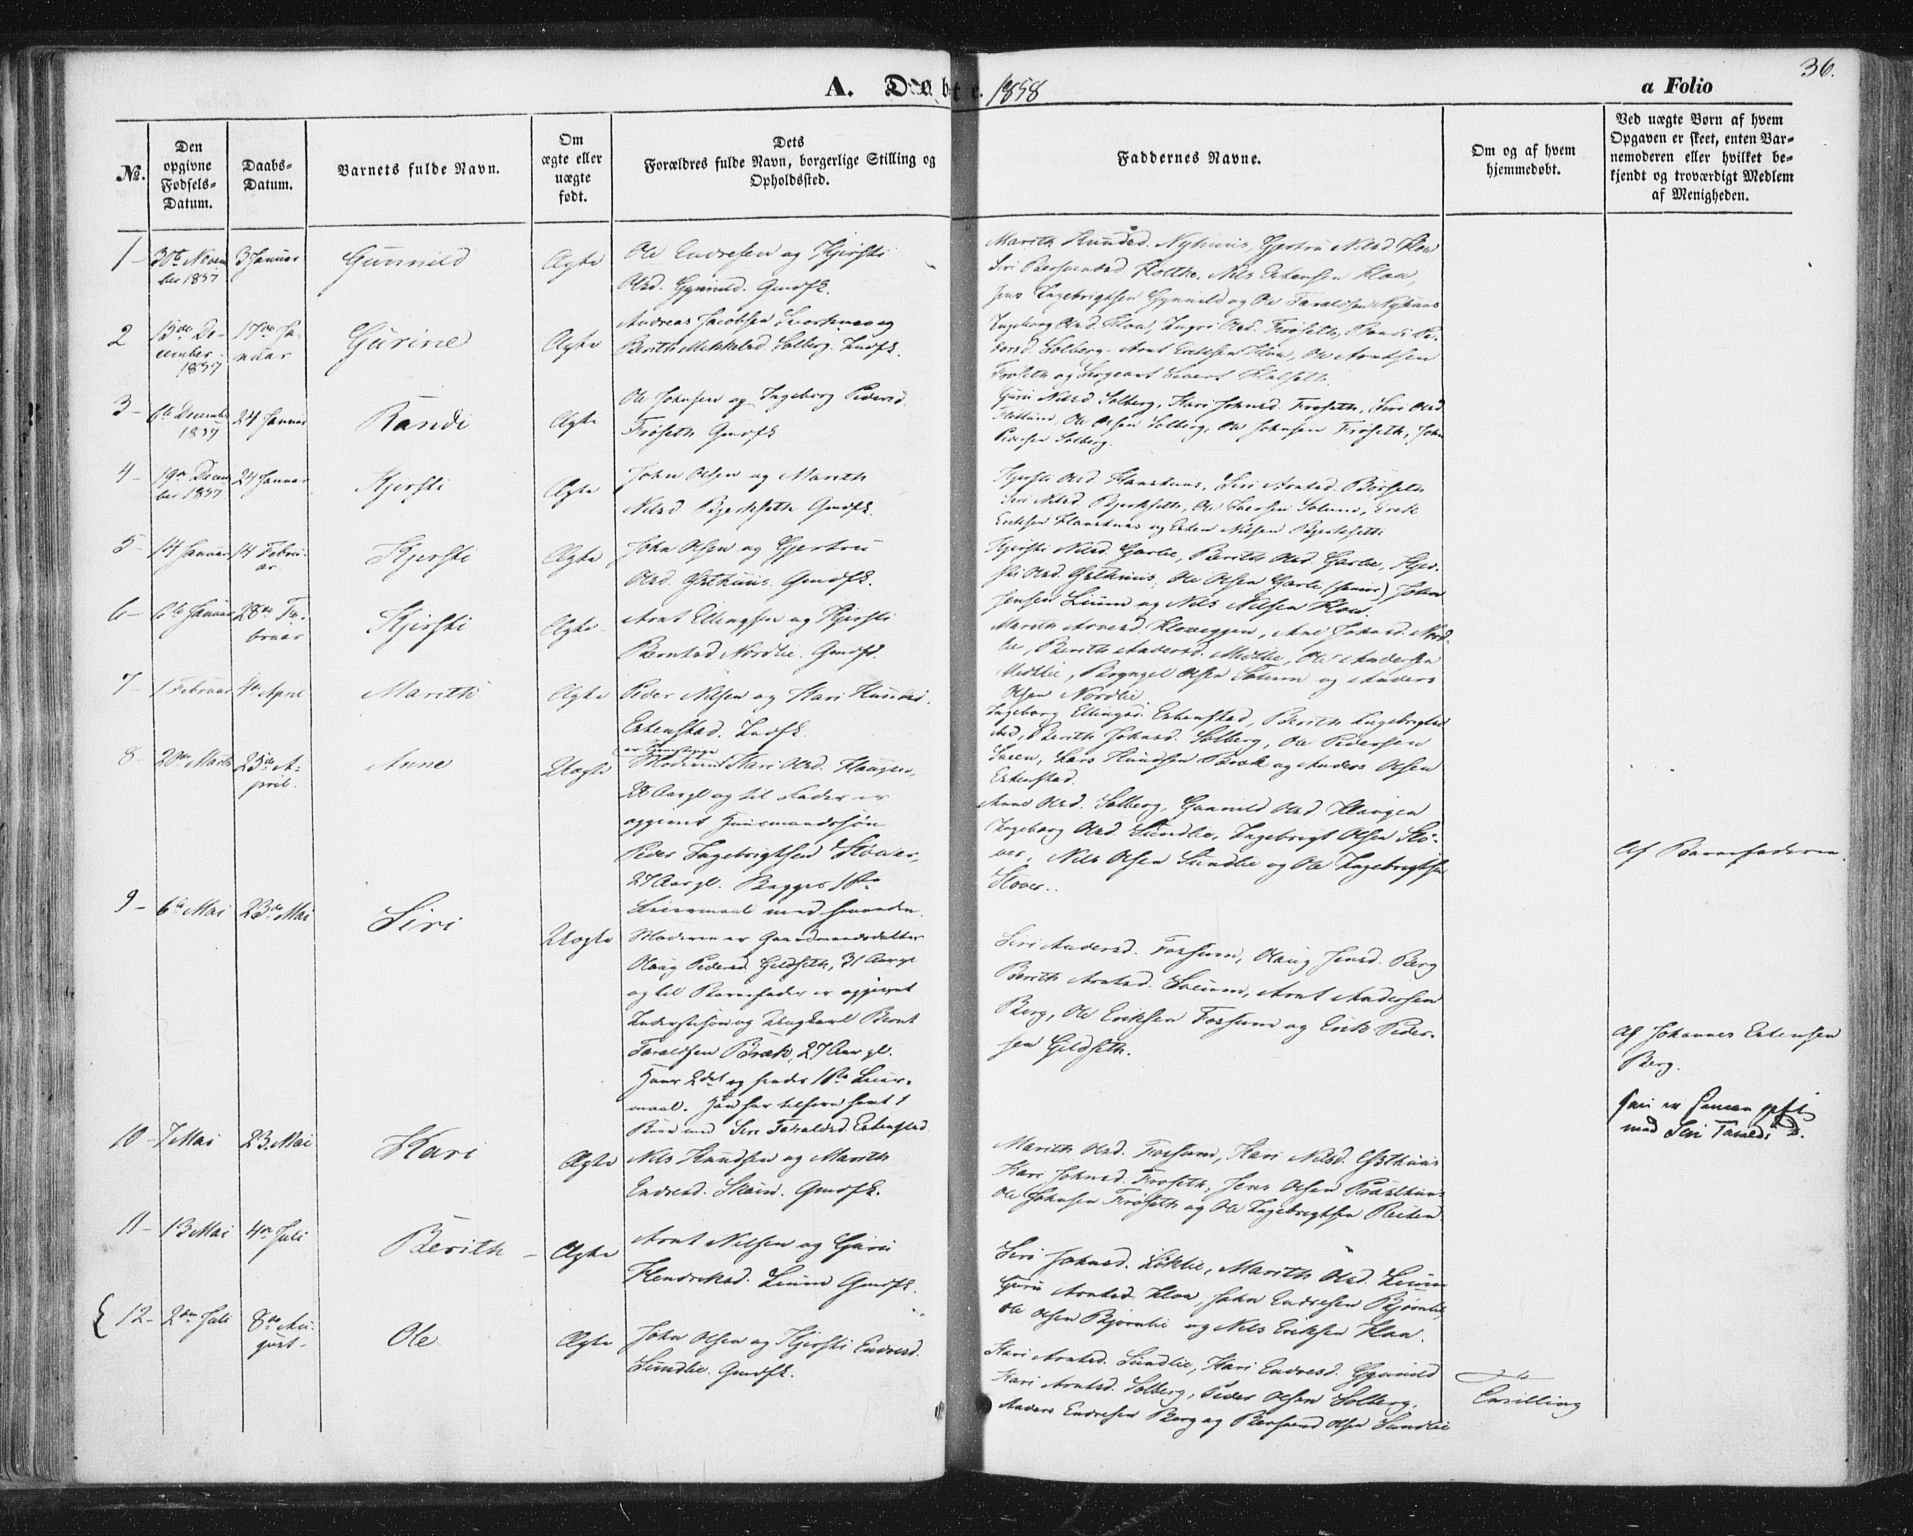 36.
A. Døbte. 1858
a Folio
No.
Den opgivne Fødsels-Datum.
Daabs-Datum.
Barnets fulde Navn.
Om ægte eller uægte født.
Dets Forældres fulde Navn, borgerlige Stilling og Opholdssted.
Faddernes Navne.
Om og af hvem hjemmedøbt.
Ved uægte Børn af hvem Opgaven er skeet, enten Barnemoderen eller hvilket bekjendt og troværdigt Medlem af Menigheden.
1 - 30te Novem
ber 1857
3 Januar
Gunnild
Ægte
Ole Endresen og Kjersti
Olsd. Gynnild. Gmdfk.
Nils Estensen Kloa,
Jens Ingebrigtsen Gynnild og Ole Taraldsen Nyhuus
2
15de De-
cember
1857
17de Ja-
nuar
Gurine
Ægte
Andreas Jacobsen
Berith Mikkelsd. Solberg. Indfk.
Ingeborg Olsd. Kloa, Ingri Olsd. Frøseth,
Solberg. Arnt Eriksen Kloa, Ole Arntsen
Frøseth og Sergeant Sivert Halseth
3 -
6te December
1857
24 Januar
Randi
Ægte
Ole Johnsen og Ingeborg Pedersd.
Frøseth Gmdfk
Guru Nilsd Solberg, Kari Johnsd. Frøseth, Siri Olsd.
Ole Olsen Solberg, Ole Johnsen Frøseth, John
Pedersen Solberg.
4 -
19de Decem
ber 1857
24 Januar
Kjersti
Ægte
John Olsen og Marith
Nilsd Bjerkseth Gmdfk.
Siri Arntsd.
Siri Nilsd Bjerkseth,
og Esten Nilsen Bjerkseth
5 -
14 Januar
14 Febru-
ar.
Kjersti
Ægte
John Olsen og Gjertru
Olsd. Østhuus. Gmdfk.
Kjersti Nilsd. Garlie, Berith Olsd. Garlie, Kjer-
sti Olsd. Østhuus, Ole Olsen Garli (junior) John
Jensen Lium og Nils Nilsen Kloa.
6 -
6te Januar
28de Fe-
bruar
Kjersti
Ægte
Arnt Ellingsen og Kjersti
Berntsd. Nordlie. Gmdfk.
Ane Johnsd. Nord-
lie, Berith Andersd. Midtlie, Ole Andersen
Midtlie, Olsen Solum og Anders
Olsen Nordlie
7 -
1 Februar
4de April
Marith
Ægte
Peder Nilsen og Kari Knudsd.
Estenstad. Indfk.
Ingeborg Ellingsd. Estenstad, Berith Ingebrigtsd
Berith Johnsd. Solberg, Ole Pedersen
Lars Knudsen Bræk og Anders Olsen
Estenstad.
8 -
20de Marts
25de A-
pril.
Anne
Uægte
Moderen Kari Olsd. Haugen,
22 Aar gl og til Fader er
opgivet Huusmandssøn
Peder Ingebrigtsen Støver,
27 Aar gl. Begges 1ste
Leiermaal med hinanden.
Anne Olsd. Solberg, Gunnild Olsd Haugen
Ingeborg Olsd Sundlie, Ingebrigt Olsen Stø-
ver, Nils Olsen Sundlie og Ole Ingebrigtsen
Støver.
Af Barnefaderen.
9 -
6te Mai
23de Mai
Siri
Uægte
Moderen er Gaardmandsdatter
Olaug Pedersd. Gildseth, 31 Aar gl
og til Barnefader er opgivet
Bernt
Taraldsen Bræk, 27 Aar gl.
Hans 2det og hendes 1ste Leier-
maal. Han har tilforn havt 1
Barn med Siri Taraldsd. Estenstad
Siri Andersd. Forsum, Olaug Jensd. Berg
Berith Arntsd. Lium, Arnt Andersen
Berg, Ole Eriksen Forsum og Erik Peder-
sen Gildseth.
Af Johannes Estensen
Berg.
med Siri Taraldsd.
10 -
7 Mai
23 Mai
Kari
Ægte
Nils Knudsen og Marith
Endresd. Skoun. Gmdfk.
Marith Olsd. Forsum, Kari Nilsd. Østhuus
Kari Johnsd. Frøseth, Jens Olsen Præsthuus
Ole Johnsen Frøseth og Ole Ingebrigtsen Reiten
11 -
13 Mai
4de Juli
Berith -
Ægte
Arnt Nilsen og Guru
Hendriksd. Lium Gmdfk.
Siri Johnsd. Løklie, Marith Olsd. Lium
Guru Arntsd. Kloa, John Endresen Bjørnlie,
Ole Olsen Bjørnlie og Nils Eriksen Kloa.
12 -
2den Juli
8de Au-
gust.
Ole
Ægte
John Olsen og Kjersti Endresd.
Sundlie. Gmdfk.
Kari Arntsd. Sundlie, Kari Endresd. Gynnild
Kari Arntsd. Solberg, Peder Olsen Solberg,
Anders Endresen Berg og Olsen Sundlie
Tvilling